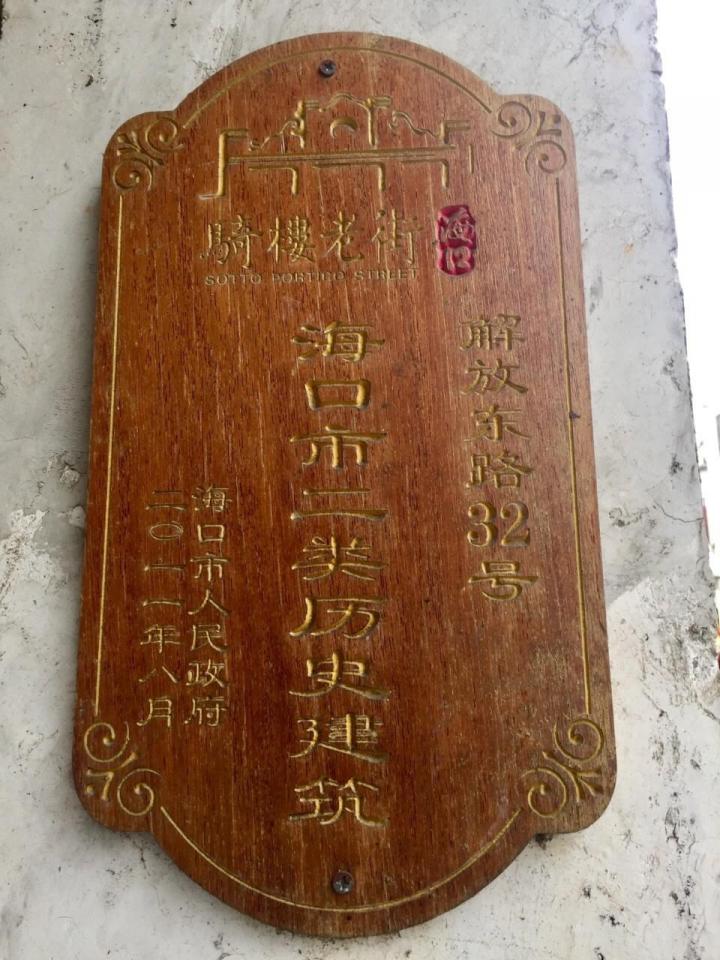 騎樓老街
海口
SOTTO PORTICO STREET
解放东路32号
海口市二类历史建筑
海口市人民政府
二〇一一年八月